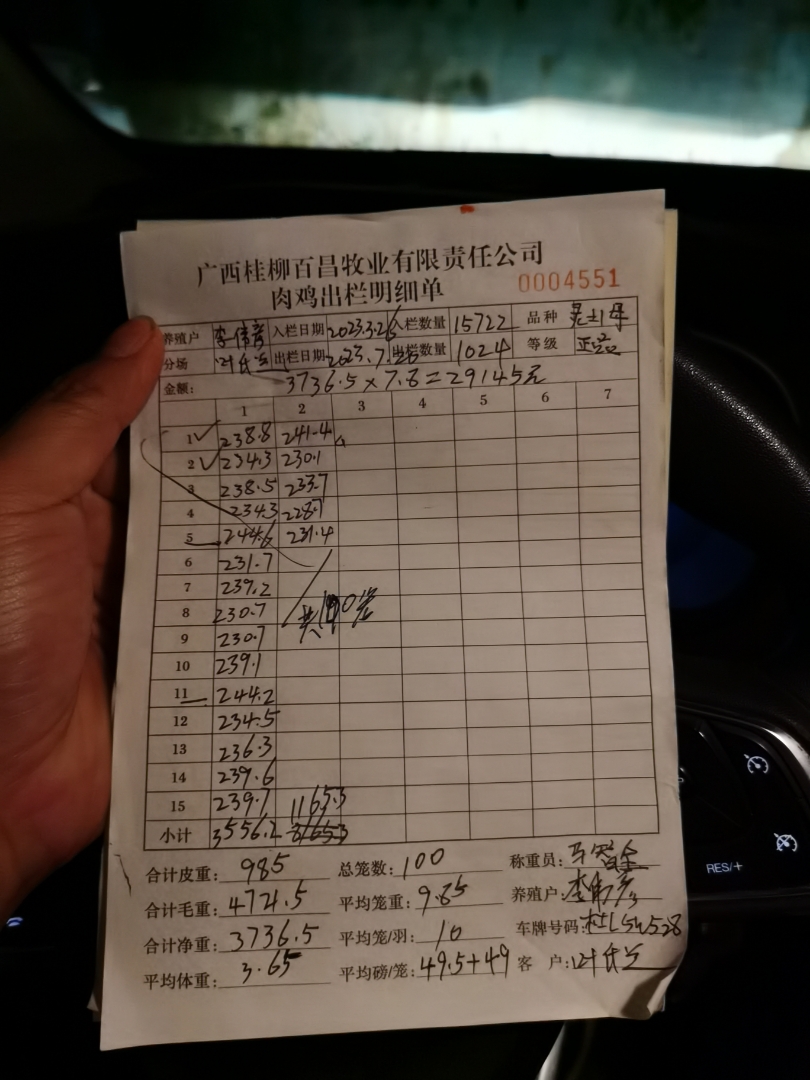 广西桂柳百昌牧业有限责任公司
肉鸡出栏明细单 0004551
养殖户 李伟彦 入栏日期 2023.3.26 入栏数量 15722 品种 灵土1号
分场 叶氏兰 出栏日期 2023.7. 出栏数量 1024 等级
金额: 3736.5×7.8=29145元
1 2 3 4 5 6 7
1 238.8 241.4
2 234.3 230.1
3 238.5 233.7
4 234.3 228.7
5 244.6 231.4
6 231.7
7 239.2
8 230.7 共100笼
9 230.7
10 239.1
11 244.2
12 234.5
13 236.3
14 239.6
15 239.7 1165.3
小计 3556.2
合计皮重: 985 总笼数: 100 称重员:
合计毛重: 4721.5 平均笼重: 9.85 养殖户: 李伟彦
合计净重: 3736.5 平均笼/羽: 10 车牌号码:
平均体重: 3.65 平均磅/笼: 49.5+49 客户: 叶氏兰
RES/+